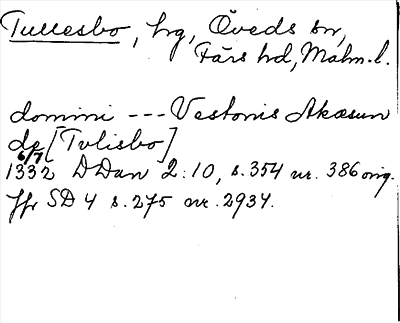 Tullesbo, hg, Öveds sn,
Färs hd, Malm. l.
domini --- Vestonis Akæsun
de [Tulisbo]
6/7
1332 DDan 2:10, s. 354 nr. 386 orig.
Jfr SD 4 s. 275 nr. 2934.